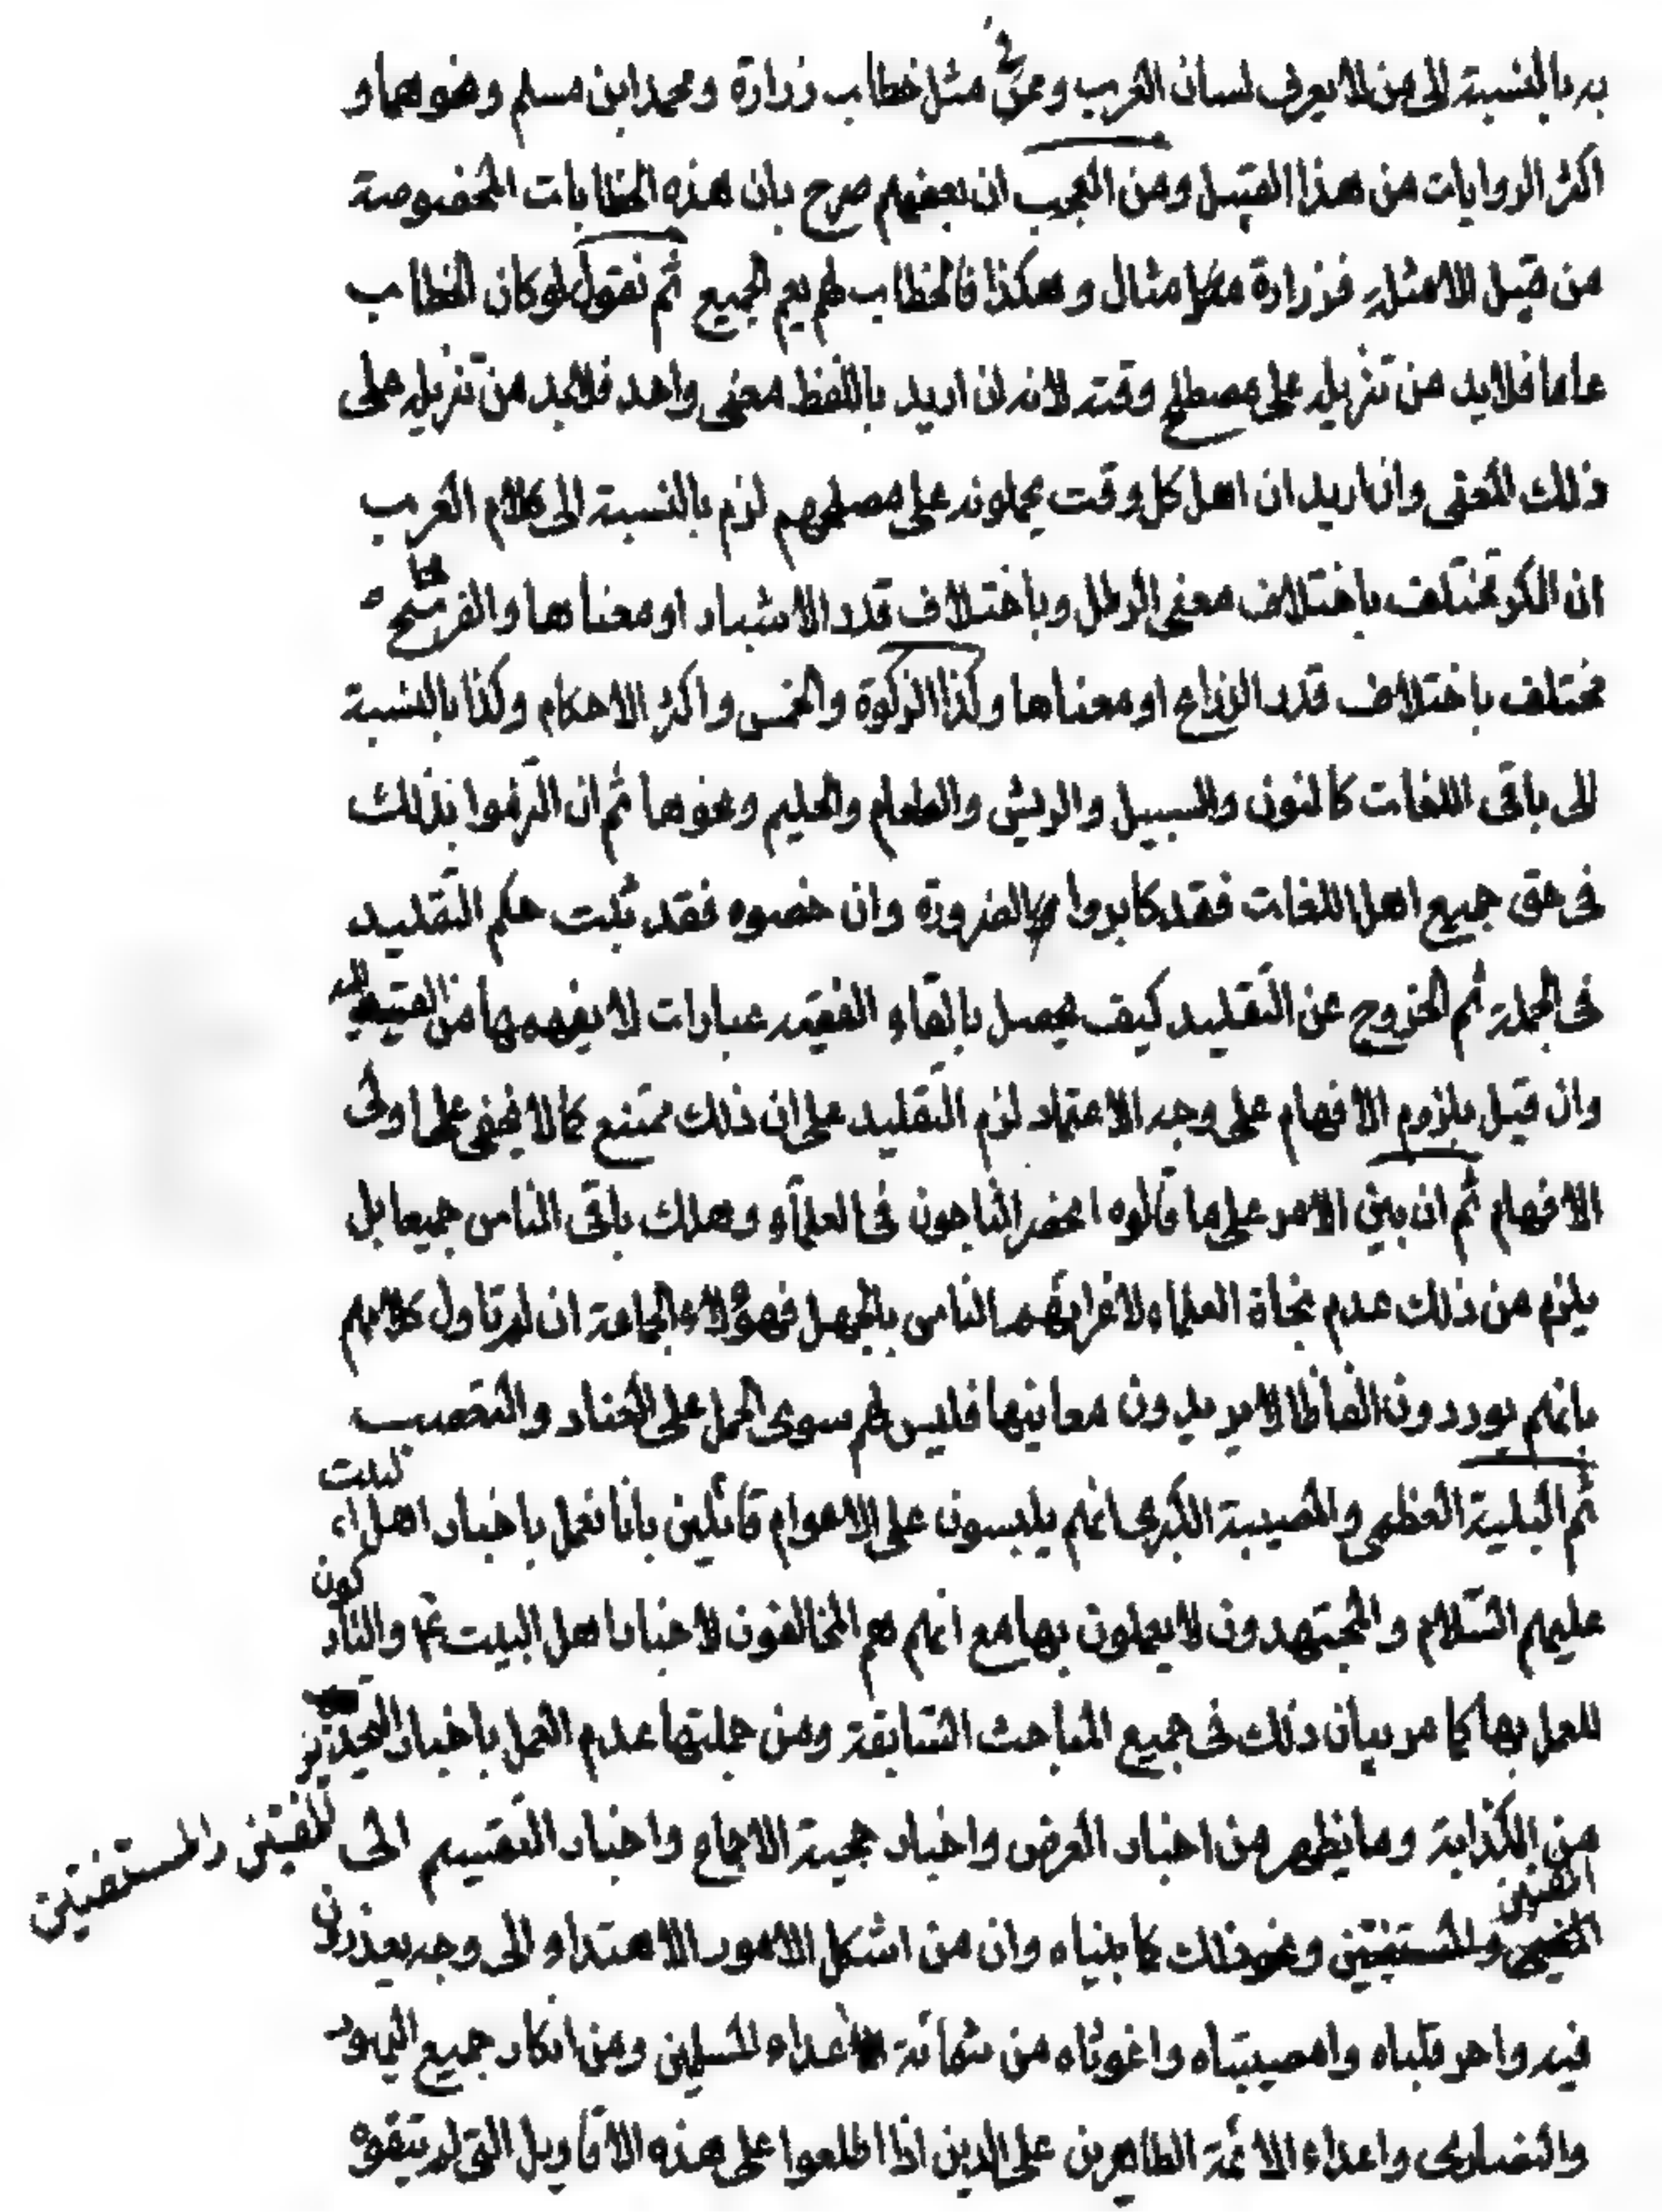 به بالنسبة الى من لا يعرف لسان العرب وعرفهم مثل خطاب زرارة ومحمد ابن مسلم ونحوهما و
اكثر الروايات من هذا القبيل ومن العجب ان بعضهم صرح بان هذه الخطابات المخصوصة
من قبيل الامثلة فزرارة مثلا مثال وهكذا فالخطاب لهم يعم الجميع ثم نقول لو كان الخطاب
عاما فلابد من تنزيله على مصطلح وقته لانه ان اريد باللفظ معنى واحد فلابد من تنزيله على
ذلك المعنى وان اريد ان اهل كل وقت يحملونه على مصطلحهم لزم بالنسبة الى كلام العرب
ان الكر تختلف باختلاف معنى الرطل وباختلاف قدر الاشبار او معناها والفرسخ
مختلف باختلاف قدر الذراع او معناها وكذا الزكوة والخمس واكثر الاحكام وكذا بالنسبة
الى باقى اللغات كالنون والسبيل والريش والطعام والحليم ونحوها ثم ان الزموا بذلك
فى حق جميع اهل اللغات فقد كابروا بالضرورة وان خصوه فقد ثبت حكم التقليد
فى الجملة ثم الخروج عن التقليد كيف يحصل بالقاء الفقيه عبارات لا يفهمها من القيت اليه
وان قيل بلزوم الافهام على وجه الاعتماد لزم التقليد على ان ذلك ممتنع كما لا يخفى على اولى
الافهام ثم ان بنى الامر على ما قالوه انحصر الناجون فى العلماء وهلك باقى الناس جميعا بل
يلزم من ذلك عدم نجاة العلماء لاغرائهم الناس بالجهل فهؤلاء الجماعة ان لم تاول كلامهم
بانهم يوردون الفاظا لا يريدون معانيها فليس لهم سوى الحمل على العناد والتعصب
ثم البلية العظمى والمصيبة الكبرى انهم يلبسون على الاعوام قائلين بانا نعمل باخبار اهل البيت
عليهم السلام والمجتهدون لا يعملون بها مع انهم هم المخالفون لاخبار اهل البيت ع والتاركون
للعمل بها كما مر بيان ذلك فى جميع المباحث السابقة ومن جملتها عدم العمل باخبار التحذير
من الكذابة وما يظهر من اخبار العرض واخبار حجية الاجماع واخبار التقسيم الى المفتين والمستفتين
ونحو ذلك كما بيناه وان من اشكل الامور الاهتداء الى وجه يعذرون
فيه واحر قلباه وامصيبتاه واغوثاه من شماتة اعداء المسلمين ومن انكار جميع اليهود
والنصارى واعداء الائمة الطاهرين على الدين اذا اطلعوا على هذه الاقاويل التى لم يتفوه